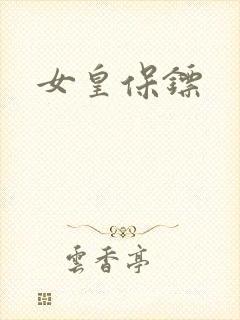 女皇保鏢
雲香亭